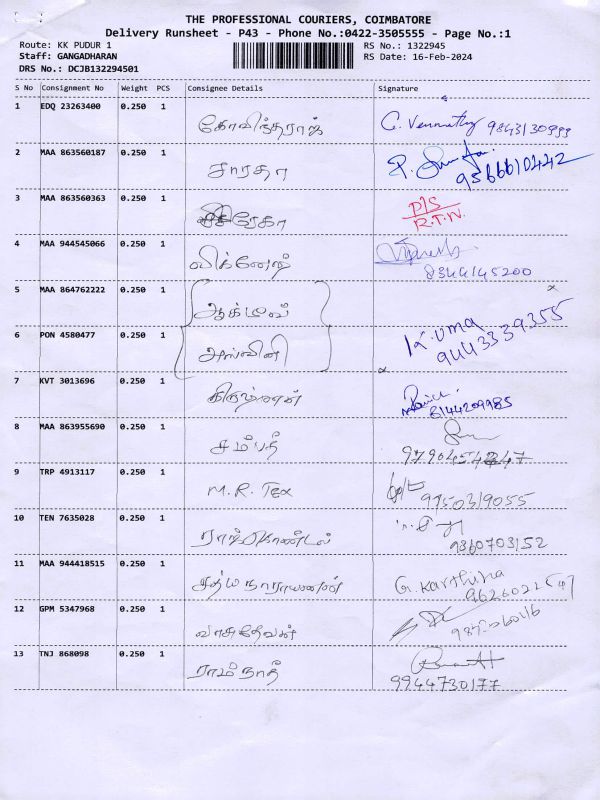 THE PROFESSIONAL COURIERS, COIMBATORE
Delivery Runsheet - P43 - Phone No.:0422-3505555 - Page No.:1
Route: KK PUDUR 1 RS No.: 1322945
Staff: GANGADHARAN RS Date: 16-Feb-2024
DRS No.: DCJB132294501
S No Consignment No Weight PCS Consignee Details Signature
1 EDQ 23263400 0.250 1 கோவிந்தராஜ் 9843130999
2 MAA 863560187 0.250 1 சாரதா 9566610442
3 MAA 863560363 0.250 1 ரேகா D/S
R.T.N.
4 MAA 944545066 0.250 1 விக்னேஷ் 8344145200
5 MAA 864762222 0.250 1 x
6 PON 4580477 0.250 1 அஸ்வினி K. uma
x 9443339355
7 KVT 3013696 0.250 1 8144209985
8 MAA 863955690 0.250 1 சம்பத்
9 TRP 4913117 0.250 1 M.R. Tex 9750319055
10 TEN 7635028 0.250 1 9360703152
11 MAA 944418515 0.250 1 சத்யநாராயணன் G. Karthika
12 GPM 5347968 0.250 1 வாசுதேவன்
13 TNJ 868098 0.250 1 ராம்நாத்
9944730177